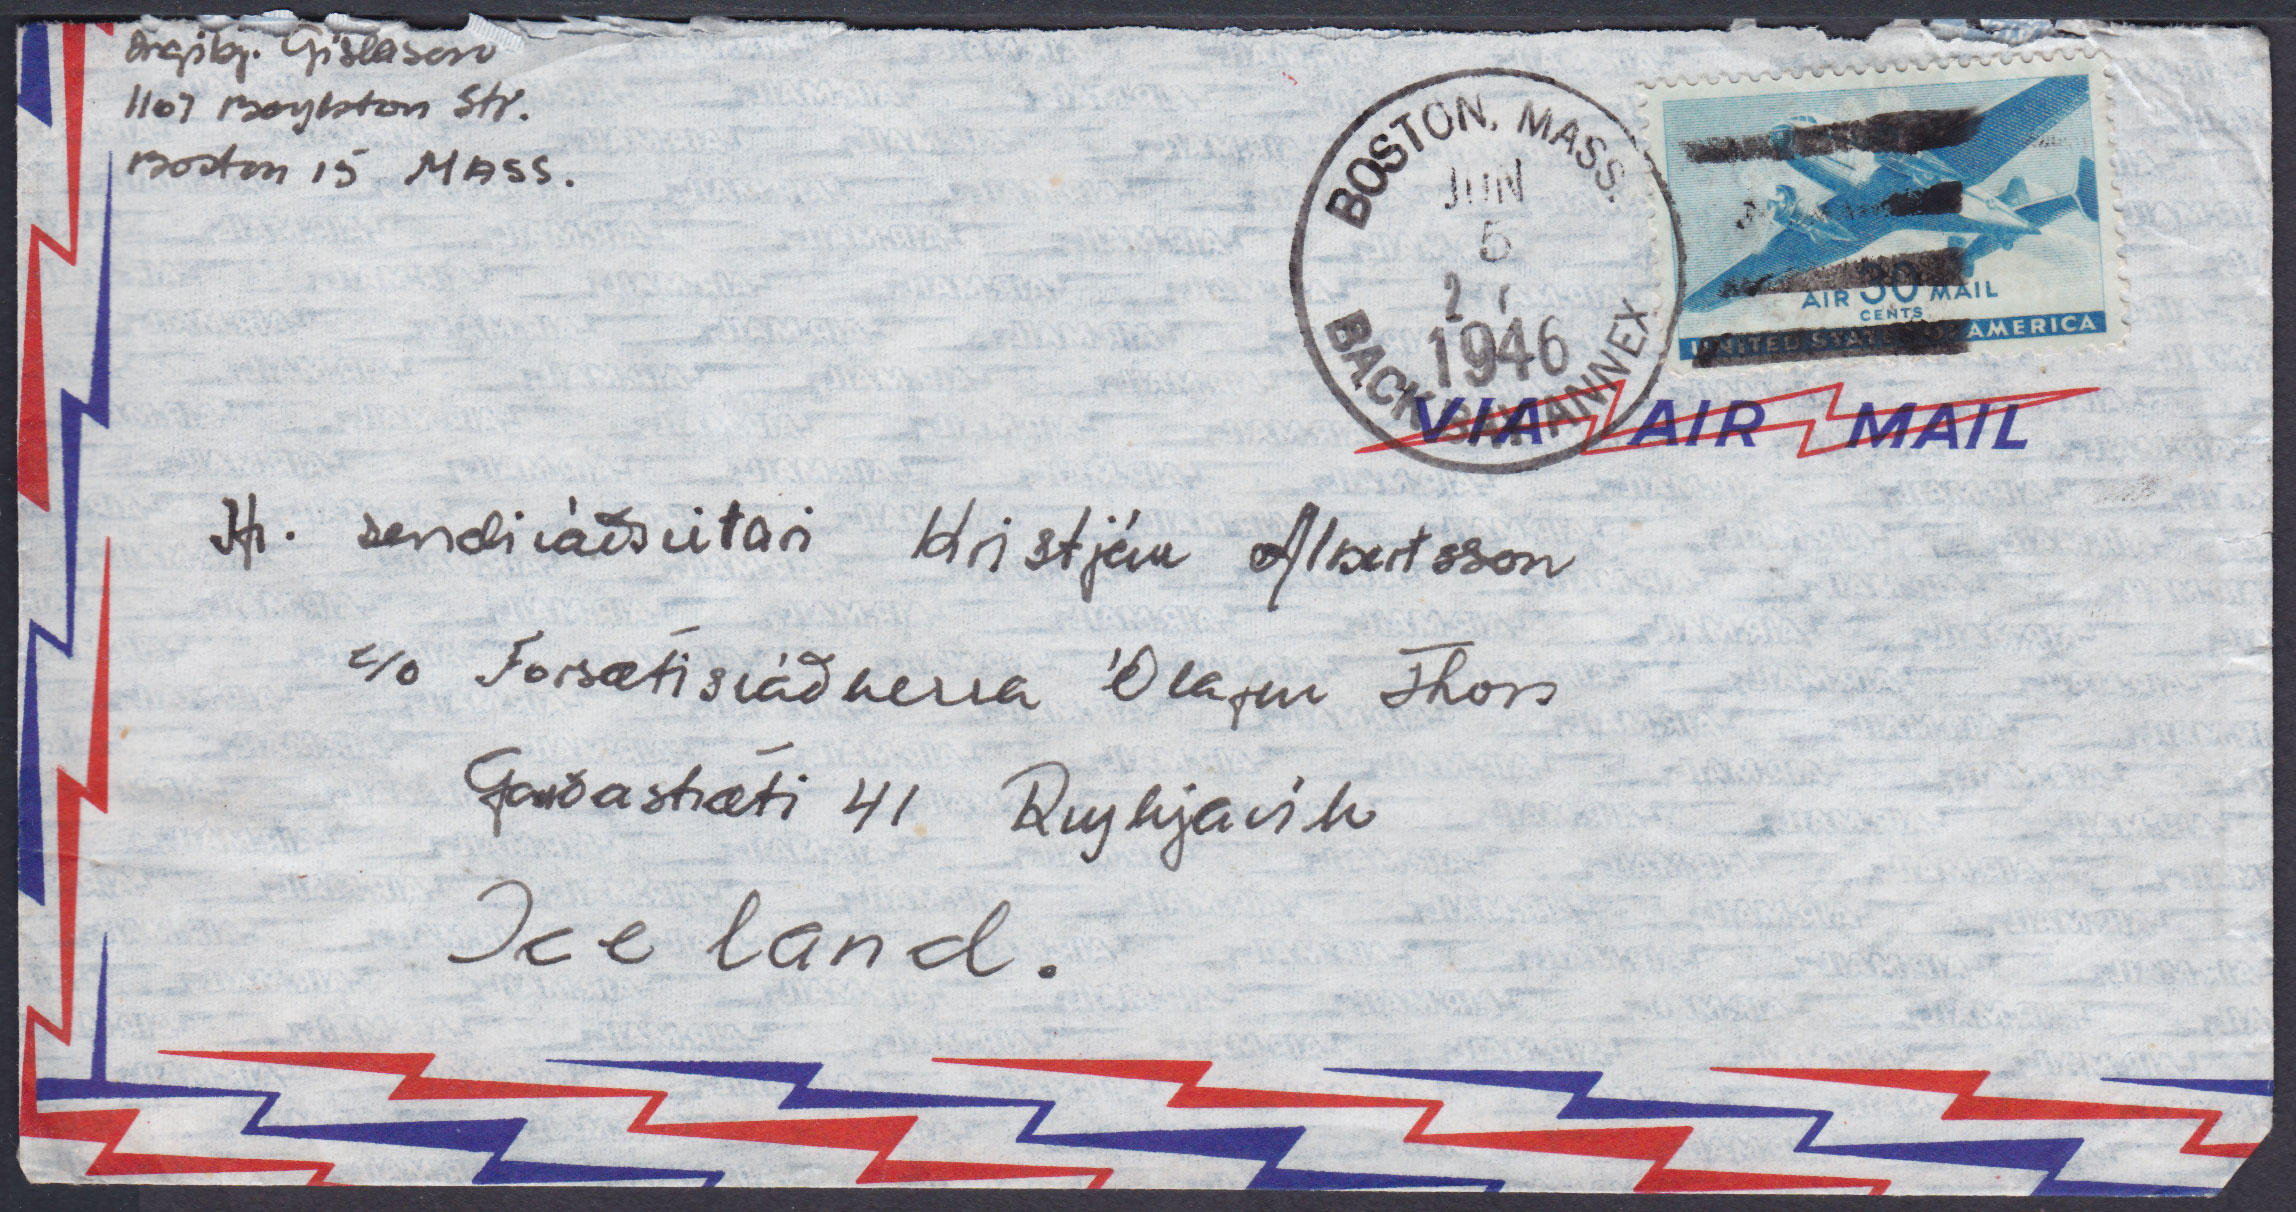 Gíslason
1107 Boylston Str.
Boston 15 MASS.
BOSTON, MASS.
JUN
5
2
1946
BACK BAY ANNEX
AIR 30 MAIL
CENTS
UNITED STATES OF AMERICA
VIA AIR MAIL
Hr. sendiráðsritari Kristján Albertsson
c/o Forsætisráðherra Ólafur Thors
Garðastræti 41 Reykjavík
Iceland.